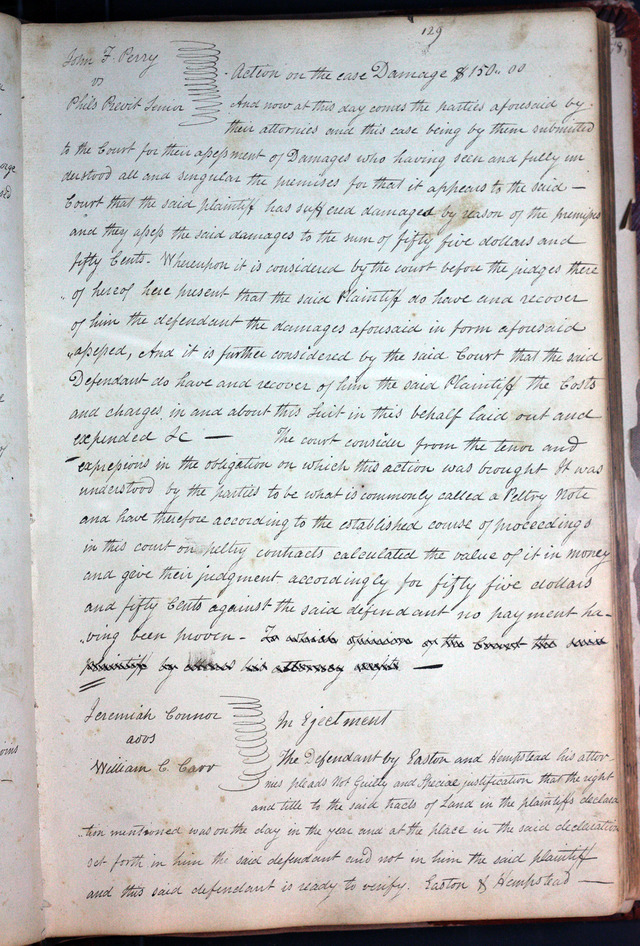 129
John F. Perry
vs
Phils Revit Senior
Action on the case Damage $150.. 00
And now at this day comes the parties aforesaid by
their attornies and this case being by them submitted
to the Court for their assessment of Damages who having seen and fully un
derstood all and singular the premises for that it appears to the said —
Court that the said plaintiff has suffered damaged by reason of the premises
and they assess the said damages to the sum of fifty five dollars and
fifty Cents. Whereupon it is considered by the court before the judges there
of hereof here present that the said Plaintiff do have and recover
of him the defendant the damages aforesaid in form aforesaid
assessed, And it is further considered by the said Court that the said
Defendant do have and recover of him the said Plaintiff the Costs
and charges in and about this Suit in this behalf laid out and
expended &c — The court consider from the tenor and
expressions in the obligation on which this action was brought it was
understood by the parties to be what is commonly called a Peltry Note
and have therefore according to the established course of proceedings
in this court on peltry contracts calculated the value of it in money
and give their judgment accordingly for fifty five dollars
and fifty Cents against the said defendant no payment ha-
ving been proven - To which opinion of the Court the said
plaintiff by his attorney —
Jeremiah Connor
advs
William C. Carr
In Ejectment
The Defendant by Easton and Hempstead his attor-
nies pleads Not Guilty and Special justification that the right
and title to the said tracts of Land in the plaintiffs declara
tion mentioned was on the day in the year and at the place in the said declaration
set forth in him the said defendant and not in him the said plaintiff
and this said defendant is ready to verify. Easton & Hempstead —